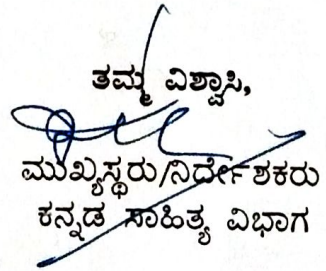 ತಮ್ಮ ವಿಶ್ವಾಸಿ,
ಮುಖ್ಯಸ್ಥರು/ನಿರ್ದೇಶಕರು
ಕನ್ನಡ ಸಾಹಿತ್ಯ ವಿಭಾಗ